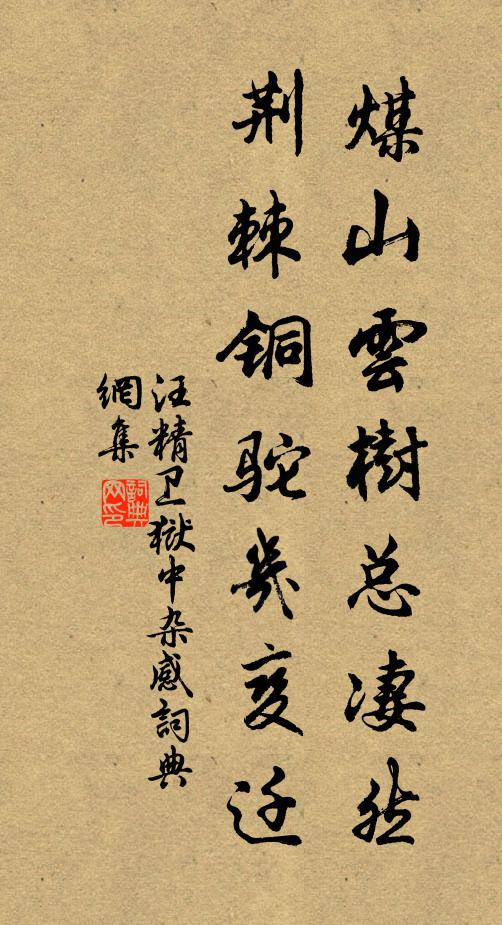 煤山雲樹总凄然
荆棘铜驼几变迁
汪精卫獄中杂感詞典
網集
詞典
网印